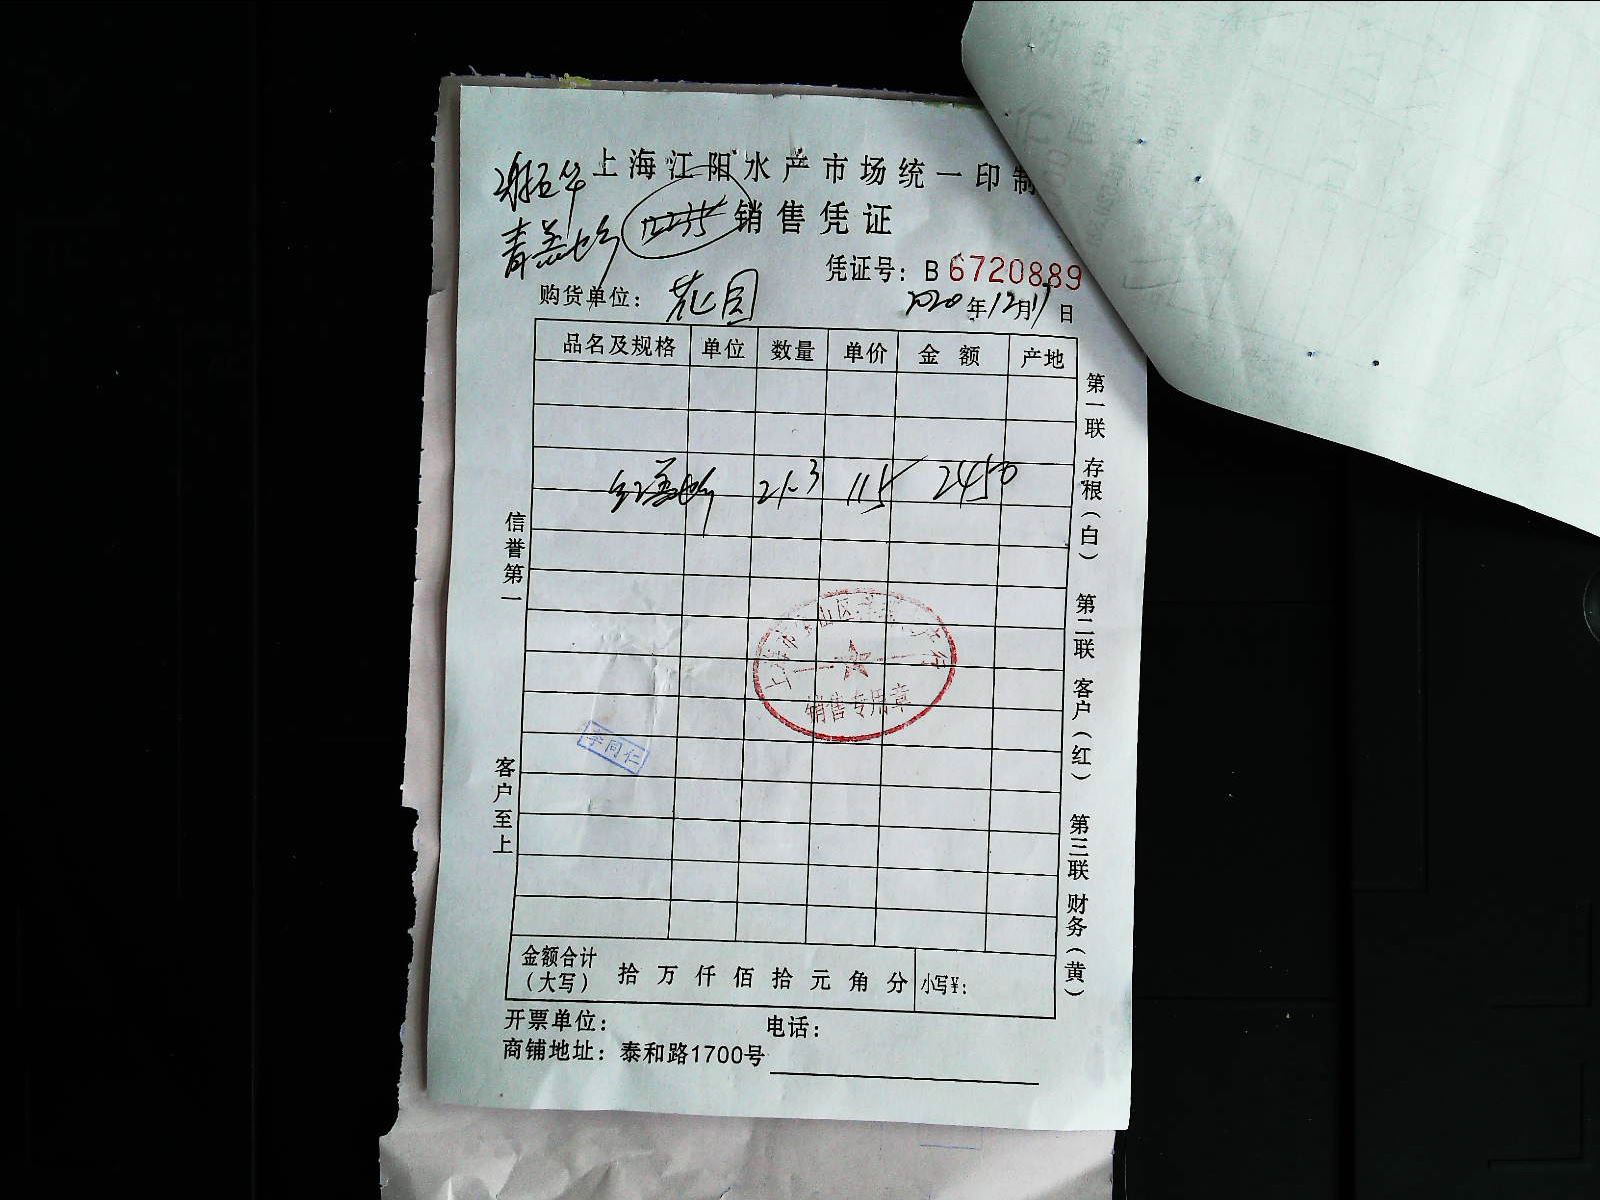 上海江阳水产市场统一印制
销售凭证
凭证号：B 6720889
购货单位：花园
2020年12月17日
品名及规格 单位 数量 单价 金额 产地
21.3 115 2450
信誉第一
客户至上
第一联 存根（白） 第二联 客户（红） 第三联 财务（黄）
销售专用章
李同仁
金额合计（大写） 拾 万 仟 佰 拾 元 角 分 小写¥：
开票单位： 电话：
商铺地址：泰和路1700号